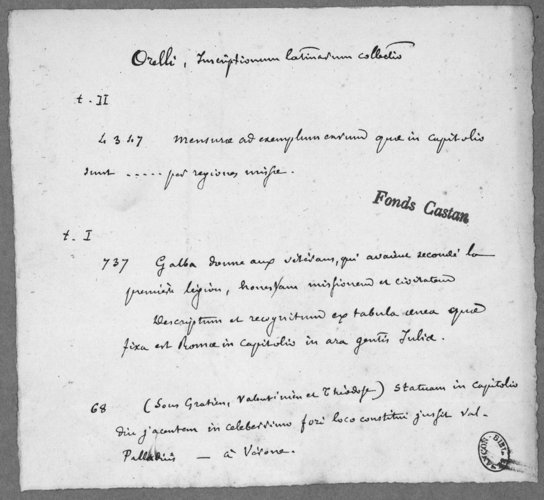 Orelli, Inscriptionum latinarum collectio
t. II
4347 Mensuræ ad exemplum earum quæ in capitolio
sunt ..... per regiones missæ.
Fonds Castan
t. I
737 Galba donne aux vétérans, qui avaient secondé la
première légion, honestam missionem et civitatem
Descriptum et recognitum ex tabula ænea quæ
fixa est Romæ in capitolio in ara gentis Juliæ.
68 (Sous Gratien, Valentinien et Théodose) Statuam in capitolio
diu jacentem in celeberrimo fori loco constitui jussit Val-
Palladius — à Vérone.